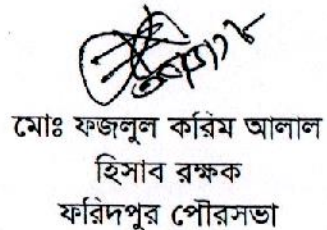 মোঃ ফজলুল করিম আলাল
হিসাব রক্ষক
ফরিদপুর পৌরসভা